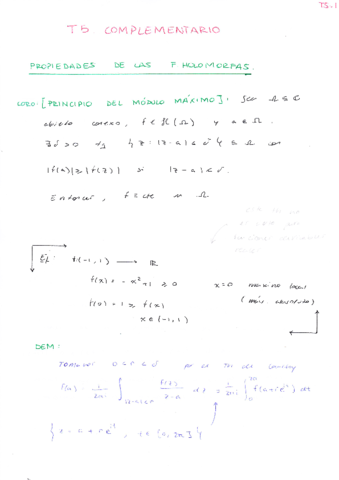 T5-1
T5 COMPLEMENTARIO
PROPIEDADES DE LAS F HOLOMORFAS.
CORO: [PRINCIPIO DEL MÓDULO MÁXIMO]: Sea Ω ⊆ ℂ
abierto conexo, f ∈ H(Ω) y a ∈ Ω.
∃ δ > 0 tq { z : |z - a| < δ } ⊆ Ω
|f(a)| ≥ |f(z)| si |z - a| < δ.
Entonces, f ≡ cte en Ω
Ej: f(-1, 1) → ℝ
f(x) = -x² + 1 ≥ 0 x=0 máximo local
f(0) = 1 ≥ f(x) (máx. absoluto)
x ∈ (-1, 1)
DEM:
TOMAMOS 0 < r < δ por el Teo de Cauchy
f(a) = 1/2πi ∫_{|z-a|=r} f(z)/(z-a) dz = 1/2π ∫_0^{2π} f(a + re^{it}) dt
{ z = a + re^{it}, t ∈ [0, 2π] }